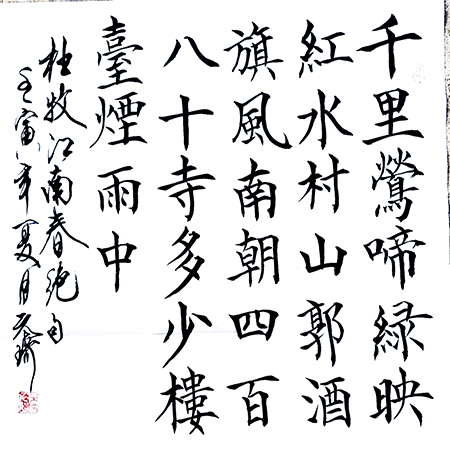 千里鶯啼緑映
紅水村山郭酒
旗風南朝四百
八十寺多少樓
臺煙雨中
杜牧江南春絶句
壬寅年夏月